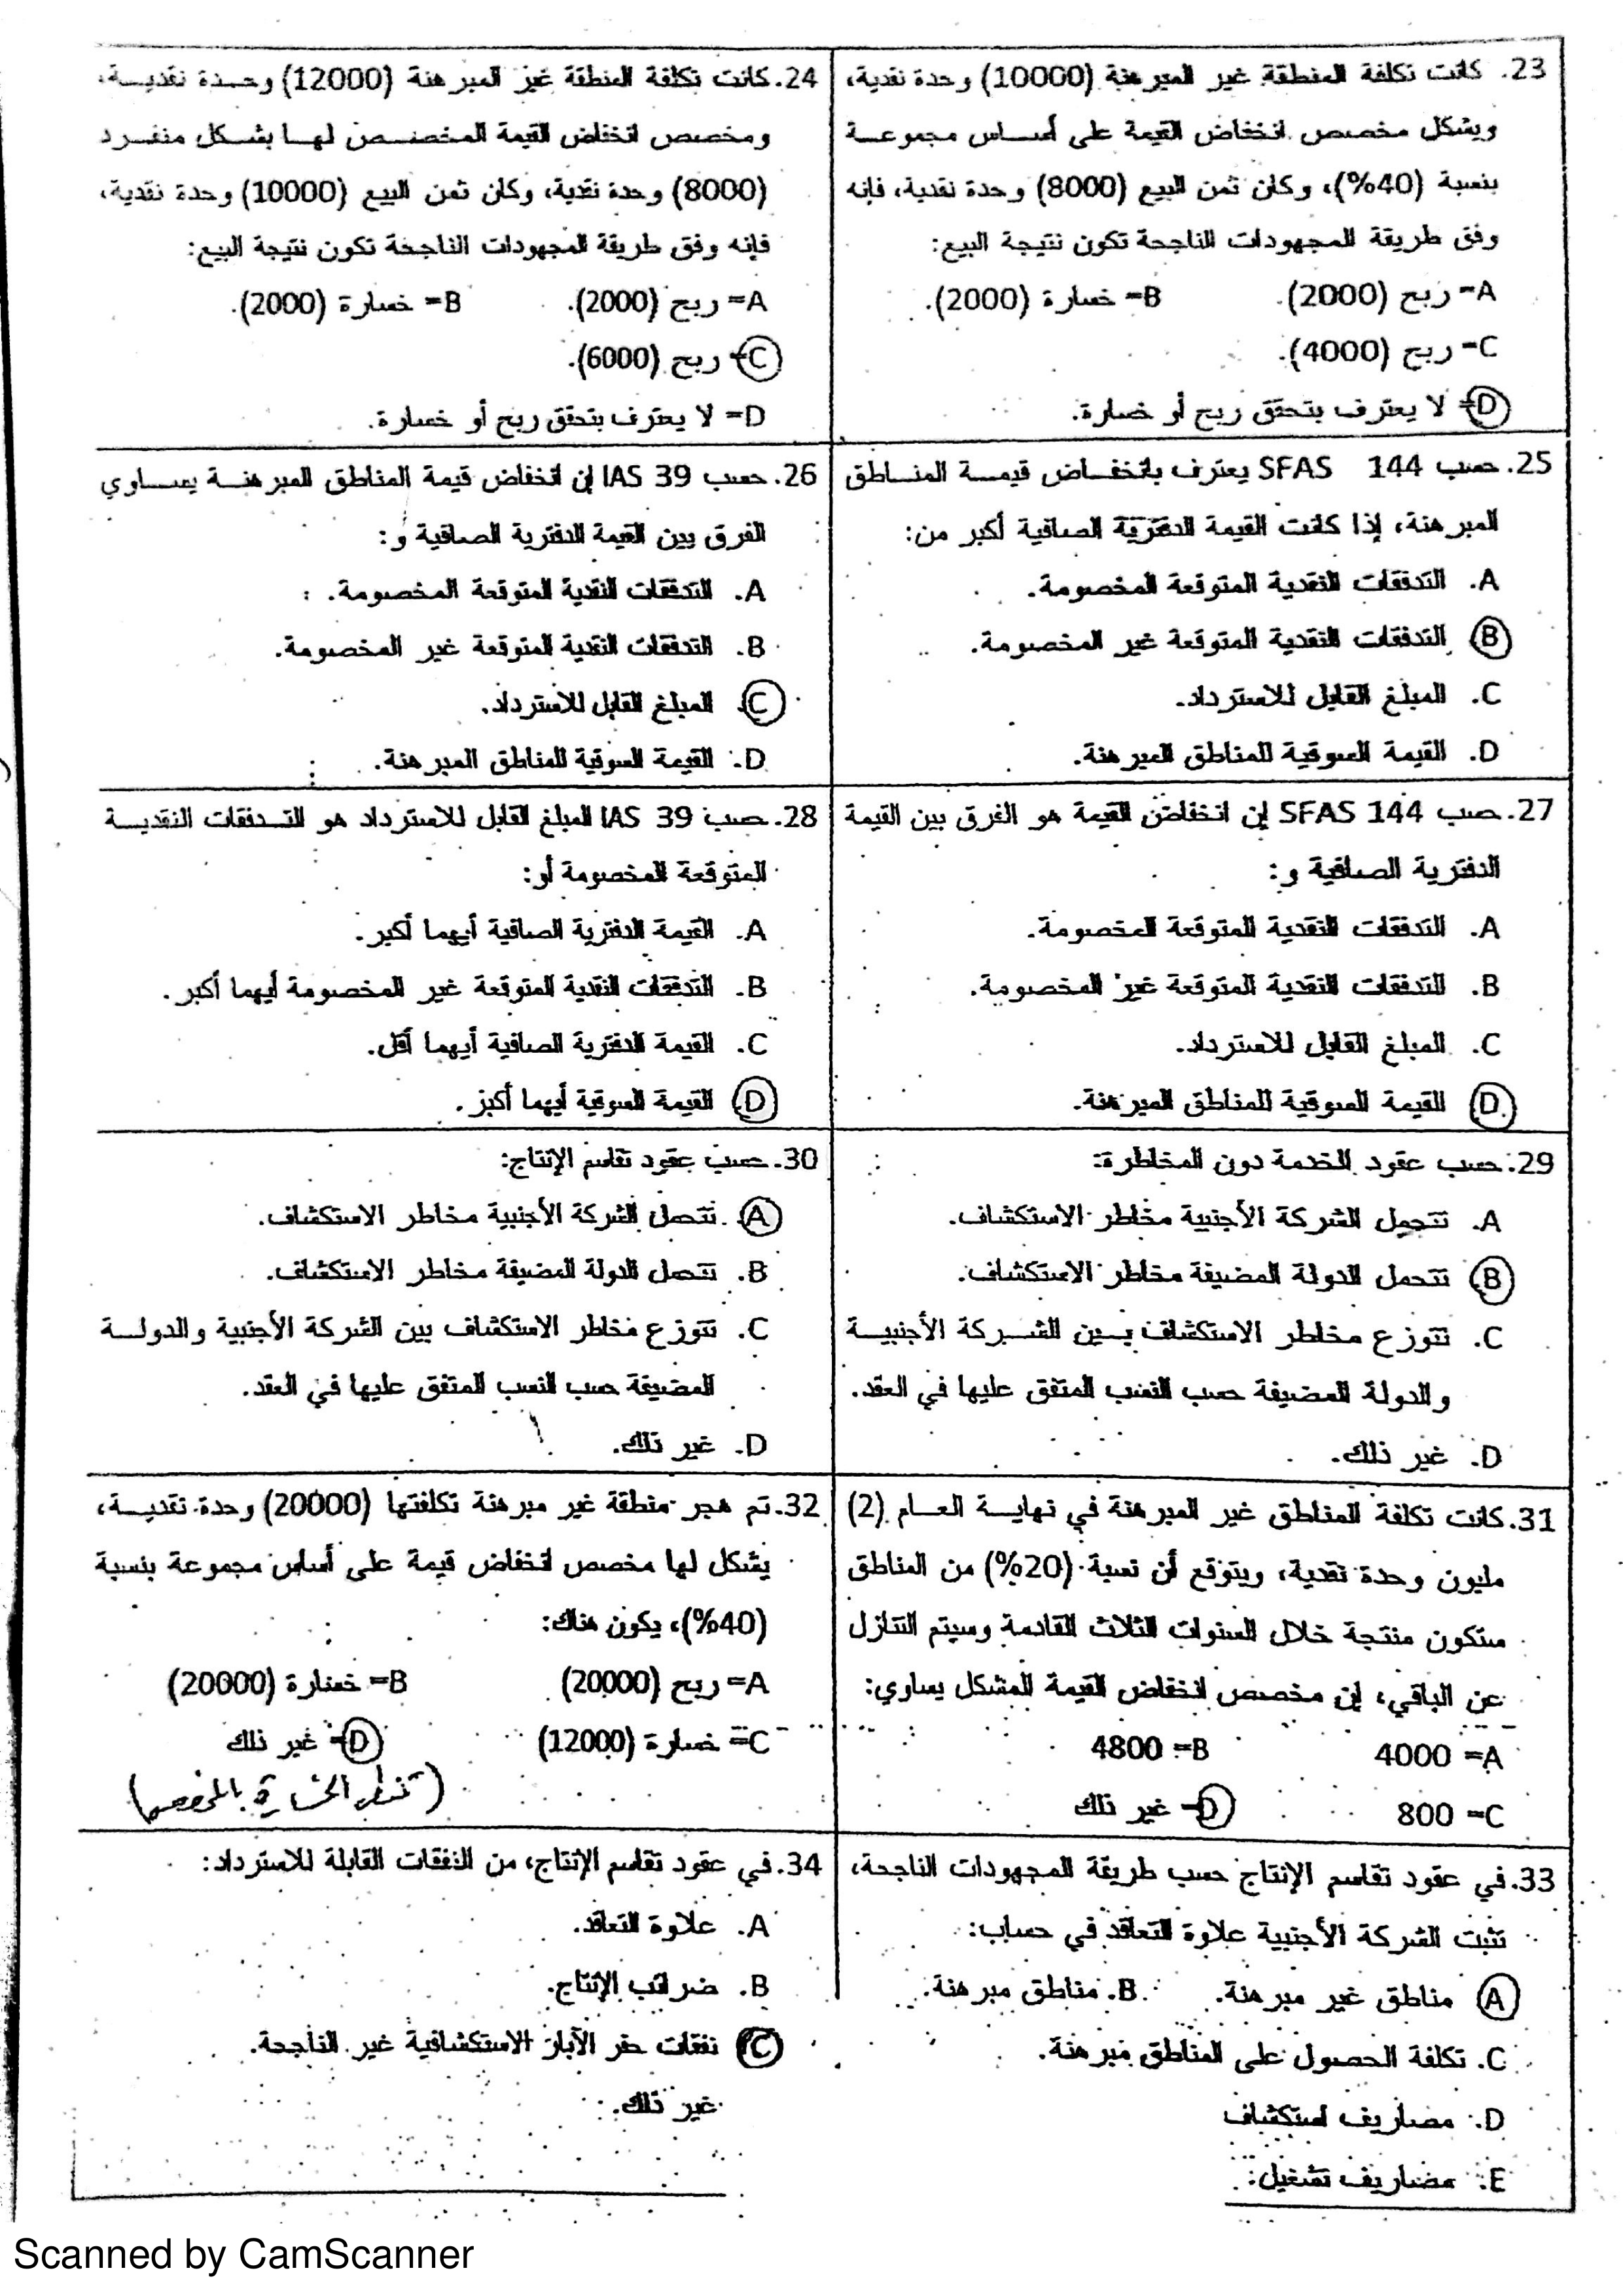 23. كانت تكلفة المنطقة غير المبرهنة (10000) وحدة نقدية،
ويشكل مخصص انخفاض القيمة على أساس مجموعة
بنسبة (40%)، وكان ثمن البيع (8000) وحدة نقدية، فإنه
وفق طريقة المجهودات الناجحة تكون نتيجة البيع:
A= ربح (2000). B= خسارة (2000).
C= ربح (4000).
D= لا يعترف بتحقق ربح أو خسارة.
24. كانت تكلفة المنطقة غير المبرهنة (12000) وحدة نقدية،
ومخصص انخفاض القيمة المخصص لها بشكل منفرد
(8000) وحدة نقدية، وكان ثمن البيع (10000) وحدة نقدية،
فإنه وفق طريقة المجهودات الناجحة تكون نتيجة البيع:
A= ربح (2000). B= خسارة (2000).
C= ربح (6000).
D= لا يعترف بتحقق ربح أو خسارة.
25. حسب SFAS 144 يعترف بانخفاض قيمة المناطق
المبرهنة، إذا كانت القيمة الدفترية الصافية أكبر من:
A. التدفقات النقدية المتوقعة المخصومة.
B التدفقات النقدية المتوقعة غير المخصومة.
C. المبلغ القابل للاسترداد.
D. القيمة السوقية للمناطق المبرهنة.
26. حسب IAS 39 إن انخفاض قيمة المناطق المبرهنة يساوي
الفرق بين القيمة الدفترية الصافية و:
A. التدفقات النقدية المتوقعة المخصومة.
B. التدفقات النقدية المتوقعة غير المخصومة.
C. المبلغ القابل للاسترداد.
D. القيمة السوقية للمناطق المبرهنة.
27. حسب SFAS 144 إن انخفاض القيمة هو الفرق بين القيمة
الدفترية الصافية و:
A. التدفقات النقدية المتوقعة المخصومة.
B. التدفقات النقدية المتوقعة غير المخصومة.
C. المبلغ القابل للاسترداد.
D. القيمة السوقية للمناطق المبرهنة.
28. حسب IAS 39 المبلغ القابل للاسترداد هو التدفقات النقدية
المتوقعة المخصومة أو:
A. القيمة الدفترية الصافية أيهما أكبر.
B. التدفقات النقدية المتوقعة غير المخصومة أيهما أكبر.
C. القيمة الدفترية الصافية أيهما أقل.
D القيمة السوقية أيهما أكبر.
29. حسب عقود الخدمة دون المخاطرة:
A. تتحمل الشركة الأجنبية مخاطر الاستكشاف.
B تتحمل الدولة المضيفة مخاطر الاستكشاف.
C. تتوزع مخاطر الاستكشاف بين الشركة الأجنبية
والدولة المضيفة حسب النسب المتفق عليها في العقد.
D. غير ذلك.
30. حسب عقود تقاسم الإنتاج:
A. تتحمل الشركة الأجنبية مخاطر الاستكشاف.
B. تتحمل الدولة المضيفة مخاطر الاستكشاف.
C. تتوزع مخاطر الاستكشاف بين الشركة الأجنبية والدولة
المضيفة حسب النسب المتفق عليها في العقد.
D. غير ذلك.
31. كانت تكلفة المناطق غير المبرهنة في نهاية العام (2)
مليون وحدة نقدية، ويتوقع أن نسبة (20%) من المناطق
ستكون منتجة خلال السنوات الثلاث القادمة وسيتم التنازل
عن الباقي، إن مخصص انخفاض القيمة المشكل يساوي:
A= 4000 B= 4800
C= 800 D= غير ذلك
32. تم هجر منطقة غير مبرهنة تكلفتها (20000) وحدة نقدية،
يشكل لها مخصص انخفاض قيمة على أساس مجموعة بنسبة
(40%)، يكون هناك:
A= ربح (20000) B= خسارة (20000)
C= خسارة (12000) D= غير ذلك
33. في عقود تقاسم الإنتاج حسب طريقة المجهودات الناجحة،
تثبت الشركة الأجنبية علاوة التعاقد في حساب:
A مناطق غير مبرهنة. B. مناطق مبرهنة.
C. تكلفة الحصول على المناطق مبرهنة.
D. مصاريف استكشاف
E. مصاريف تشغيل.
34. في عقود تقاسم الإنتاج، من النفقات القابلة للاسترداد:
A. علاوة التعاقد.
B. ضرائب الإنتاج.
C نفقات حفر الآبار الاستكشافية غير الناجحة.
غير ذلك.
Scanned by CamScanner